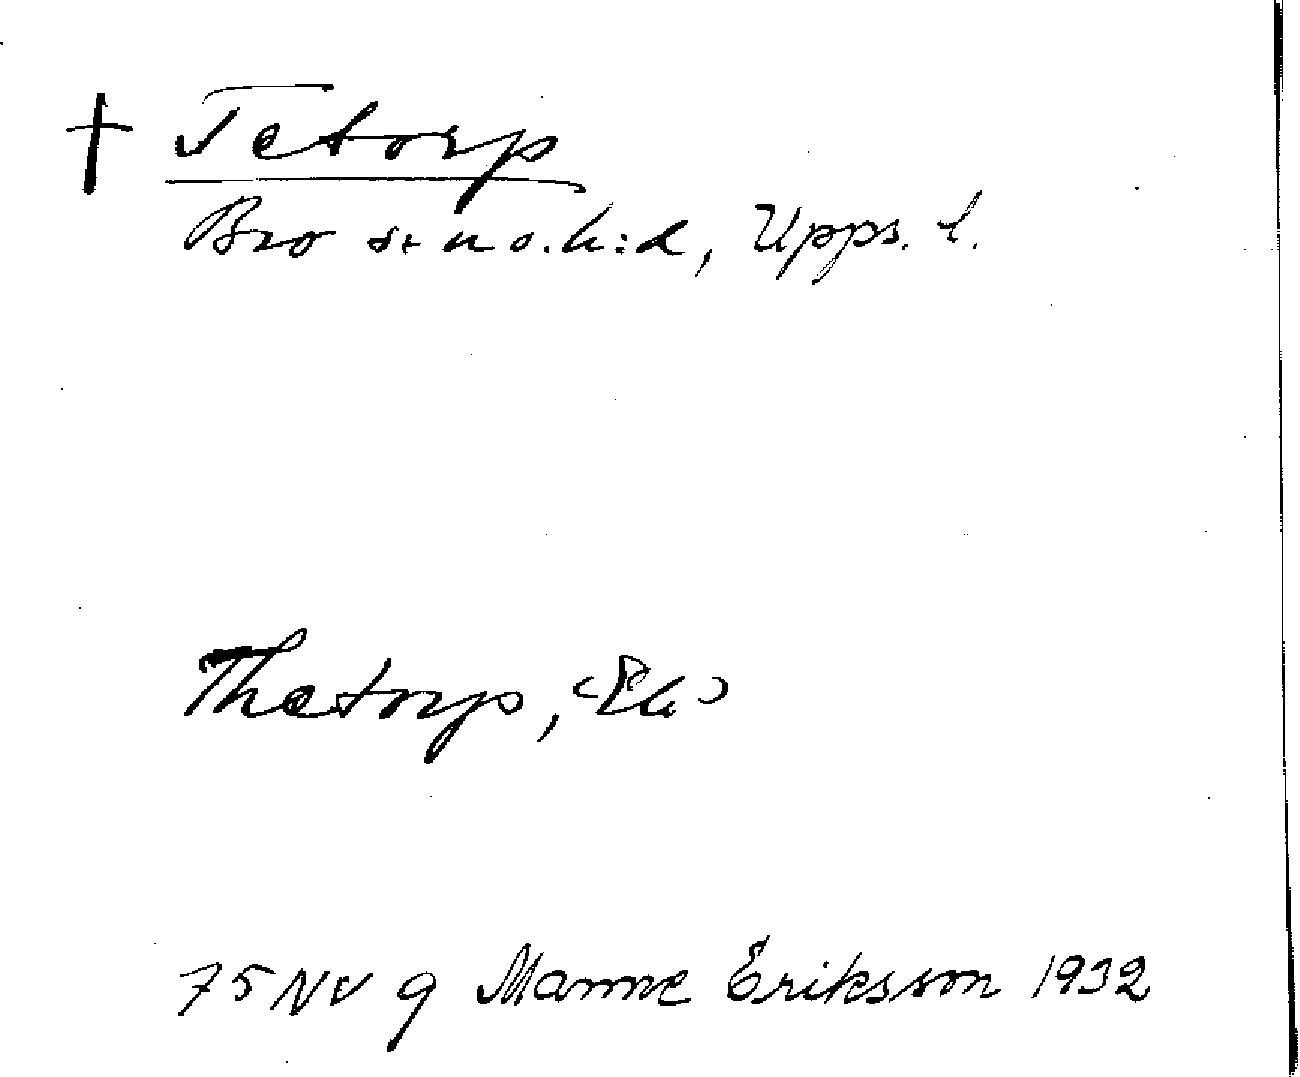 † Tetorp
Bro sn o. h:d, Upps. l.
Thetorp, (Ek)
75 NV g Manne Eriksson 1932